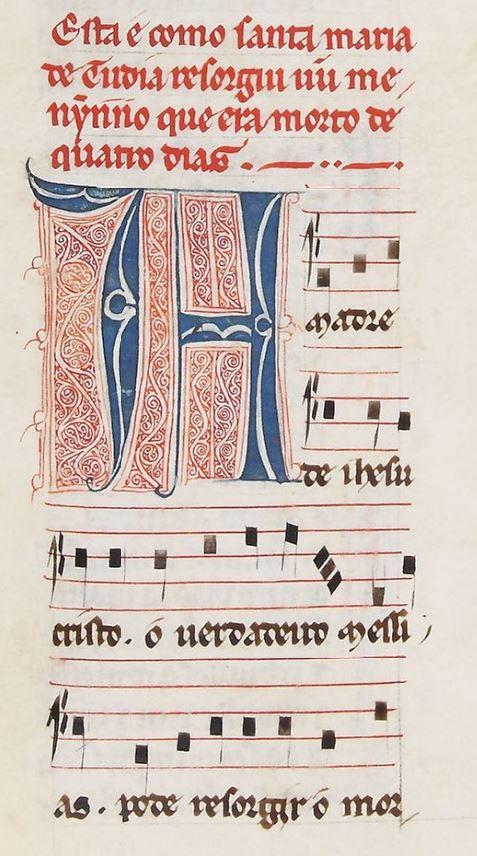 Esta e como santa maria
de Tudia resorgiu uũ me
nỹnno que era morto de
quatro dias.
A
madre
de ihesu
cristo. o uerdadeiro messi
as. pode resorgir o mor